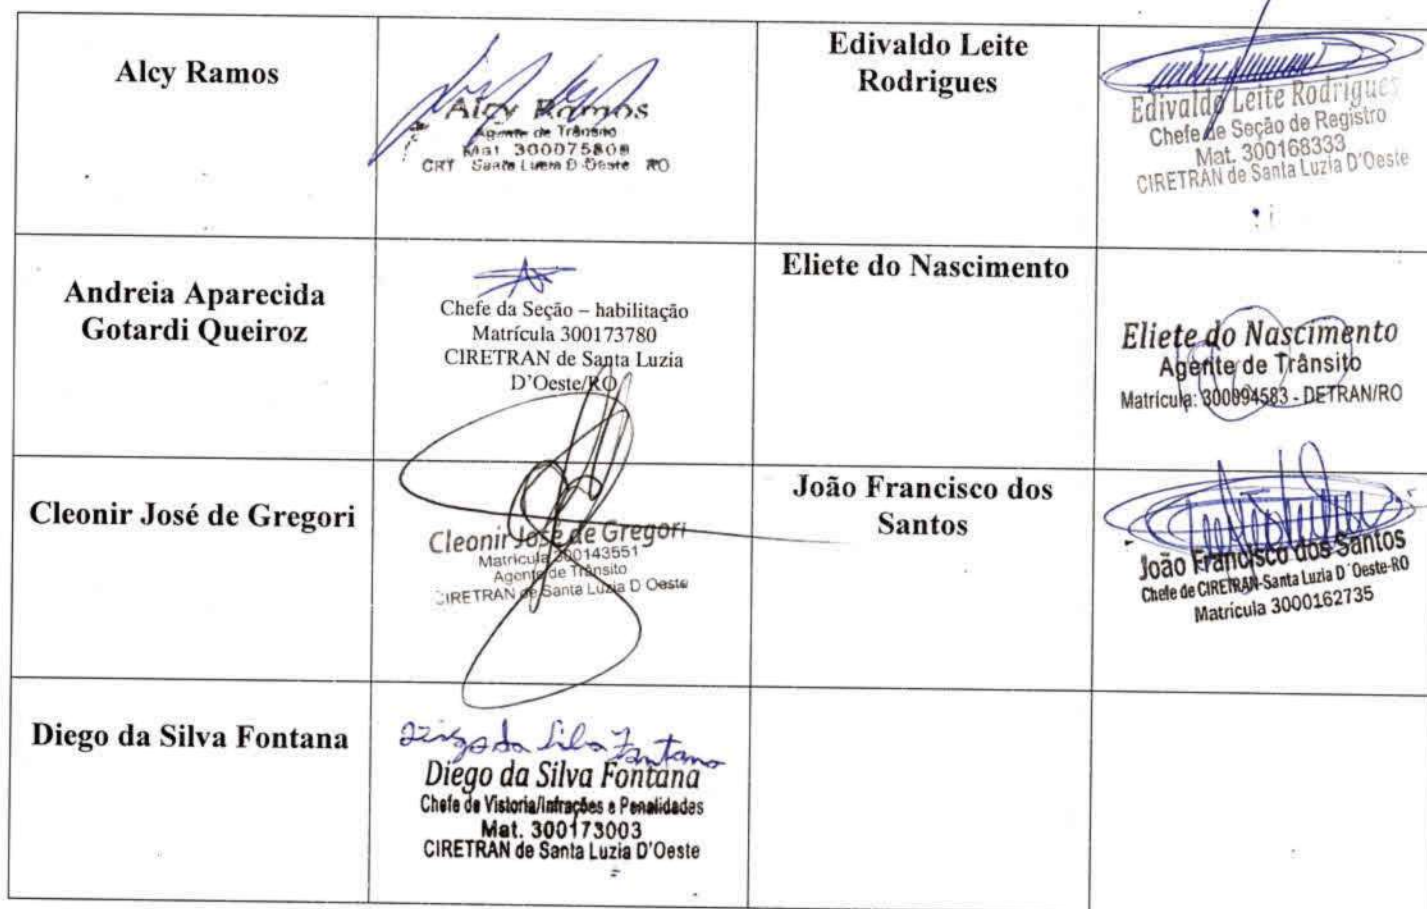 Alcy Ramos
Alcy Ramos
Agente de Trânsito
Mat. 300075808
CRT Santa Luzia D Oeste RO
Edivaldo Leite
Rodrigues
Edivaldo Leite Rodrigues
Chefe de Seção de Registro
Mat. 300168333
CIRETRAN de Santa Luzia D'Oeste
Andreia Aparecida
Gotardi Queiroz
Chefe da Seção – habilitação
Matrícula 300173780
CIRETRAN de Santa Luzia
D'Oeste/RO
Eliete do Nascimento
Eliete do Nascimento
Agente de Trânsito
Matrícula: 300094583 - DETRAN/RO
Cleonir José de Gregori
Cleonir José de Gregori
Matricula 300143551
Agente de Trânsito
CIRETRAN de Santa Luzia D Oeste
João Francisco dos
Santos
João Francisco dos Santos
Chefe de CIRETRAN-Santa Luzia D´Oeste-RO
Matrícula 3000162735
Diego da Silva Fontana
Diego da Silva Fontana
Diego da Silva Fontana
Chefe de Vistoria/Infrações e Penalidades
Mat. 300173003
CIRETRAN de Santa Luzia D'Oeste